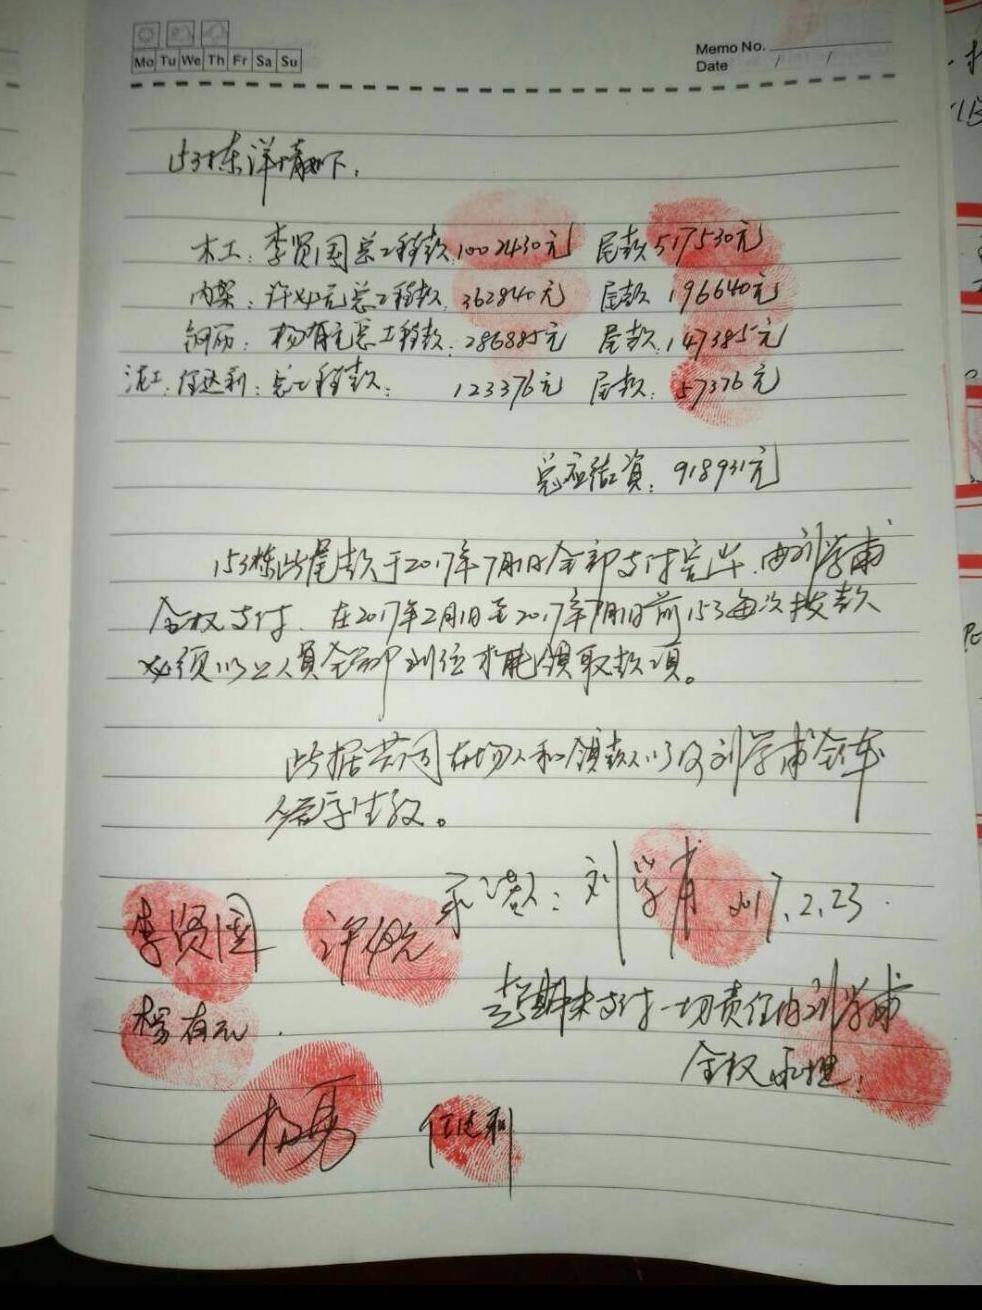 Mo Tu We Th Fr Sa Su
Memo No.
Date / /
153栋详情如下:
木工:李贤国总工程款:1002430元 尾款517530元
内架:许如元总工程款:362840元 尾款196640元
钢筋:杨有元总工程款:286885元 尾款:147385元
泥工:任达利:总工程款: 123376元 尾款:57376元
总应结资:918931元
153栋此尾款于2017年7月1日全部支付完毕.由刘学甫
全权支付.在2017年2月1日至2017年7月1日前153每次拨款
必须以上人员全部到位才能领取款项。
此据共同在场人和领款人以及刘学甫全体
签字生效。
承诺人:刘学甫 2017.2.23.
李贤国 许如元
杨有元.
超期未支付一切责任由刘学甫
全权承担.
杨勇 任达利